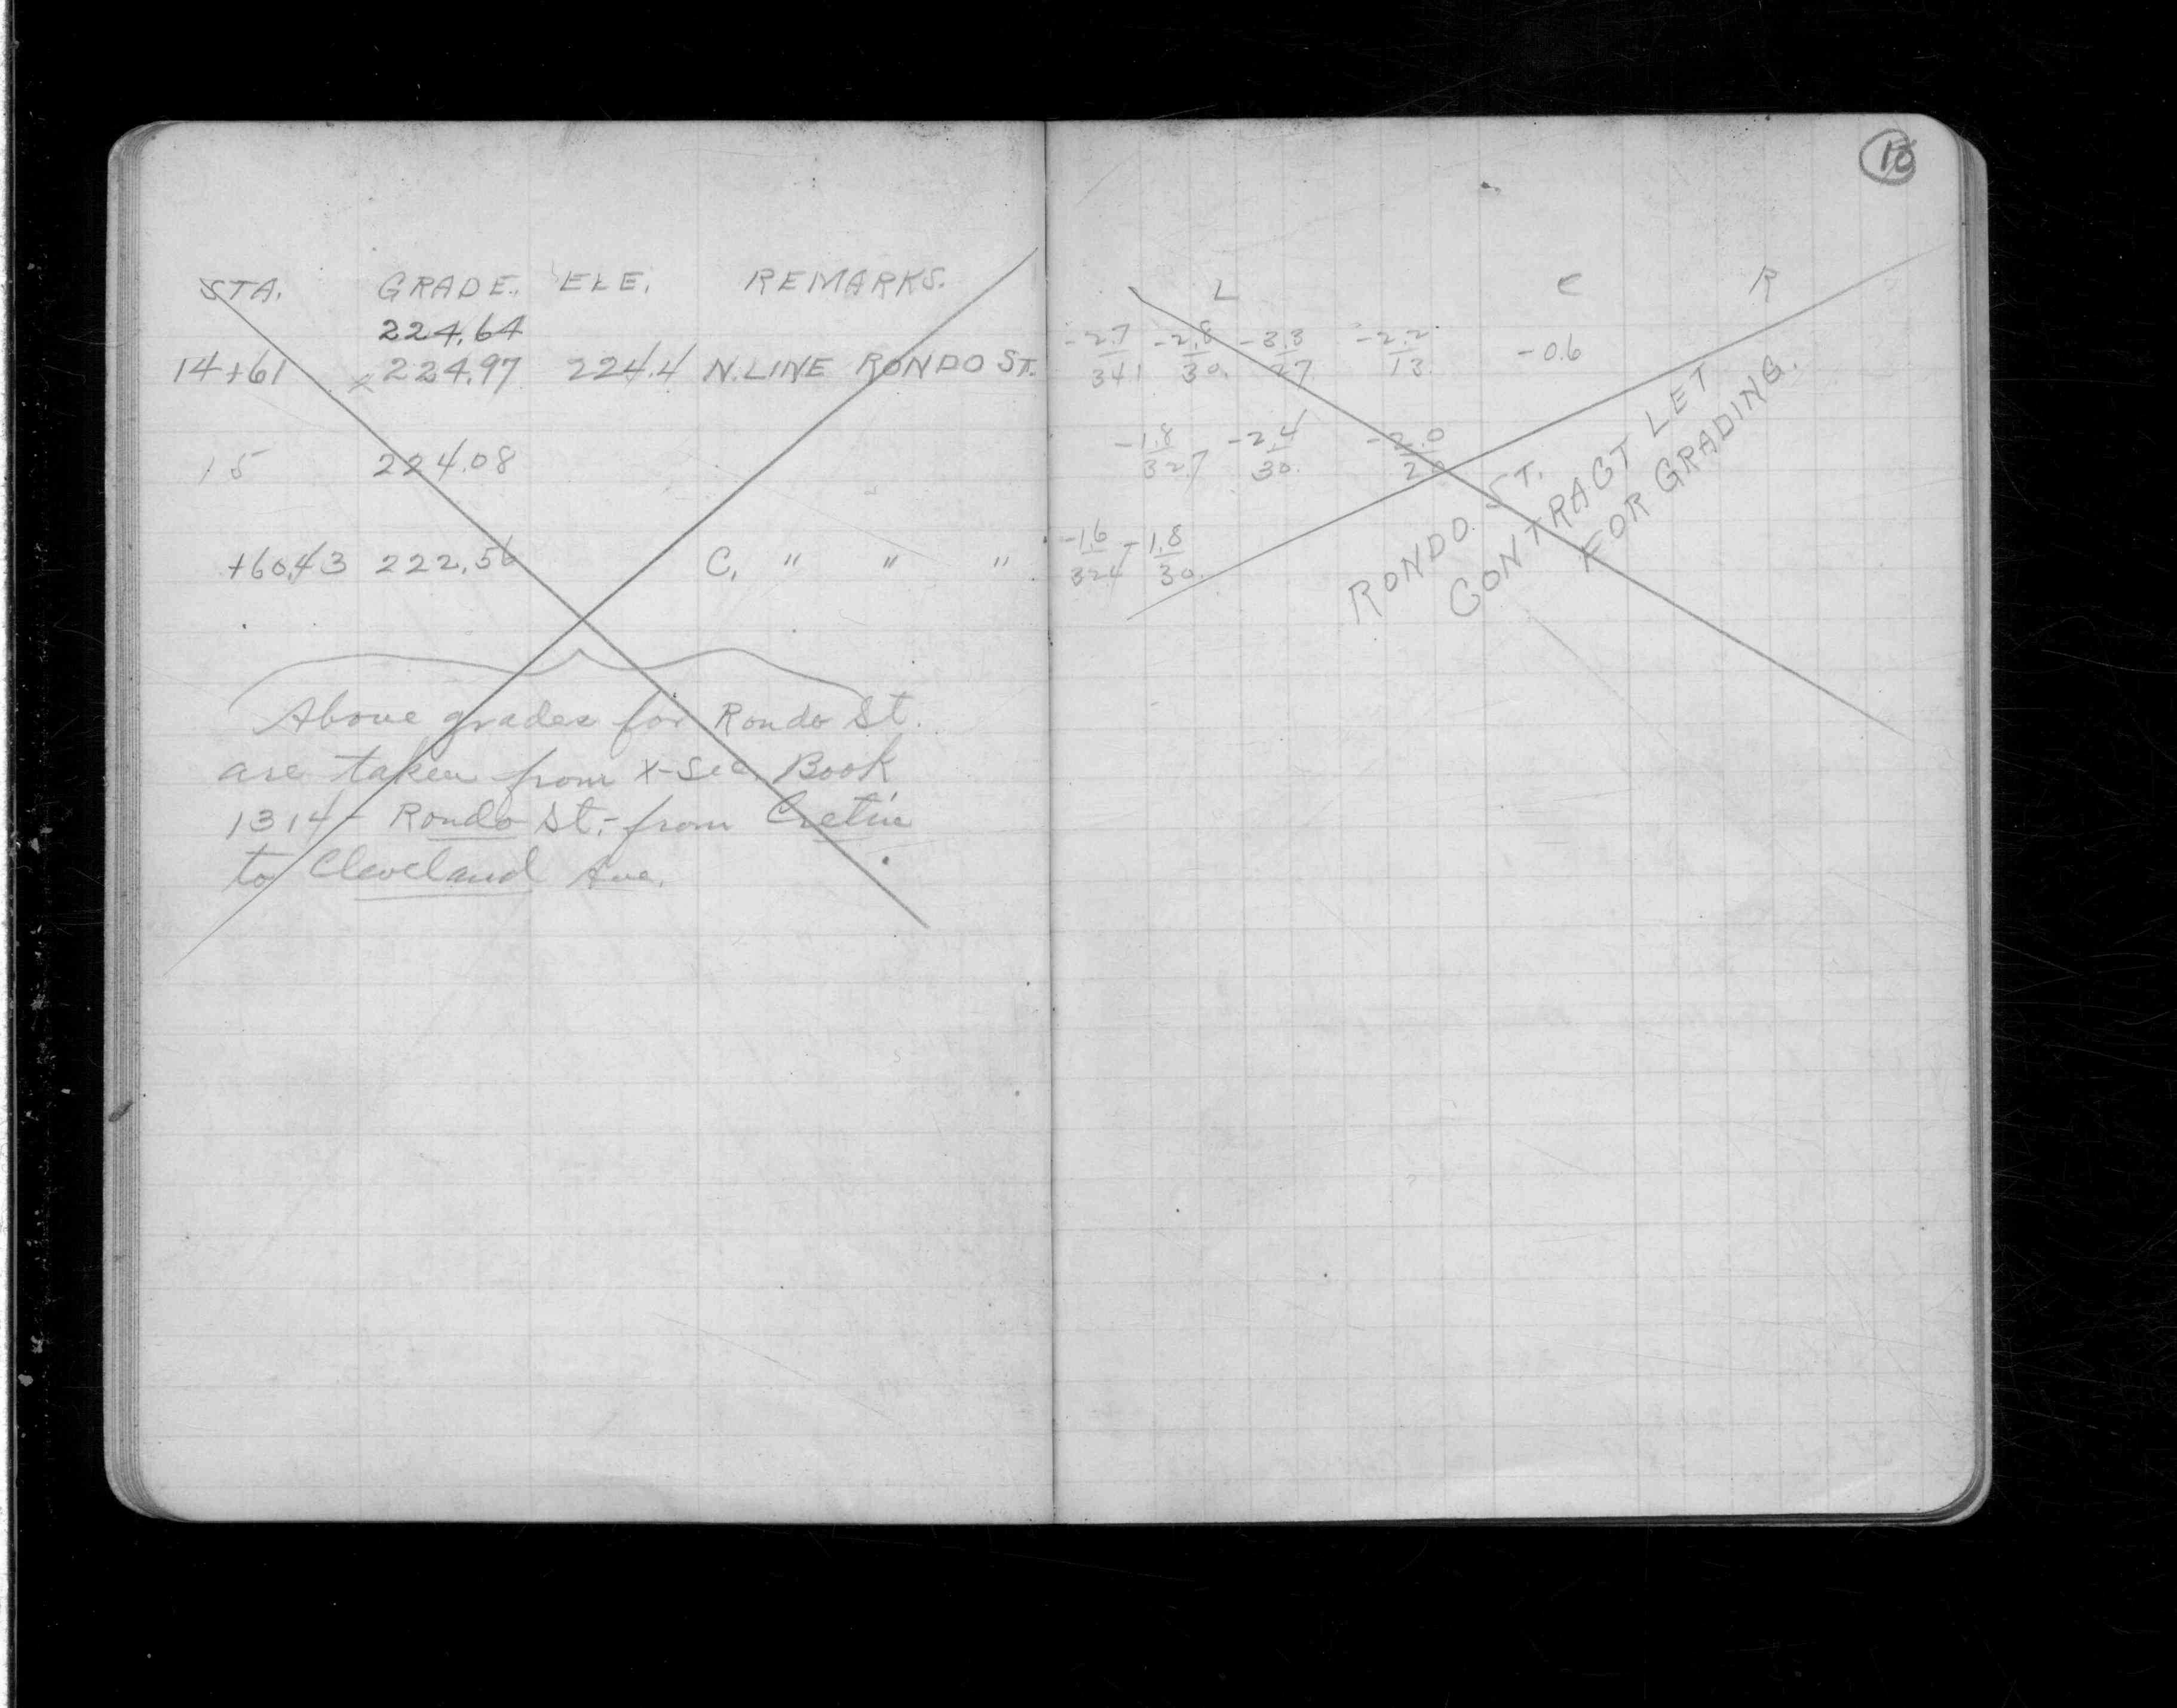 STA. GRADE. ELE. REMARKS.
224.64
14+61 x 224.97 224.4 N.LINE RONDO ST.
15 224.08
+60.43 222.56 C. " " "
Above grades for Rondo St.
are taken from X-Sec. Book
1314 - Rondo St. - from Cretin
to Cleveland Ave.
10
L C R
-2.7 -2.8 -3.3 -2.2 -0.6
341 30. 27 13.
-1.8 -2.4 -2.0
32.7 30. 20
-1.6 -1.8
324 30.
RONDO ST.
CONTRACT LET
FOR GRADING.